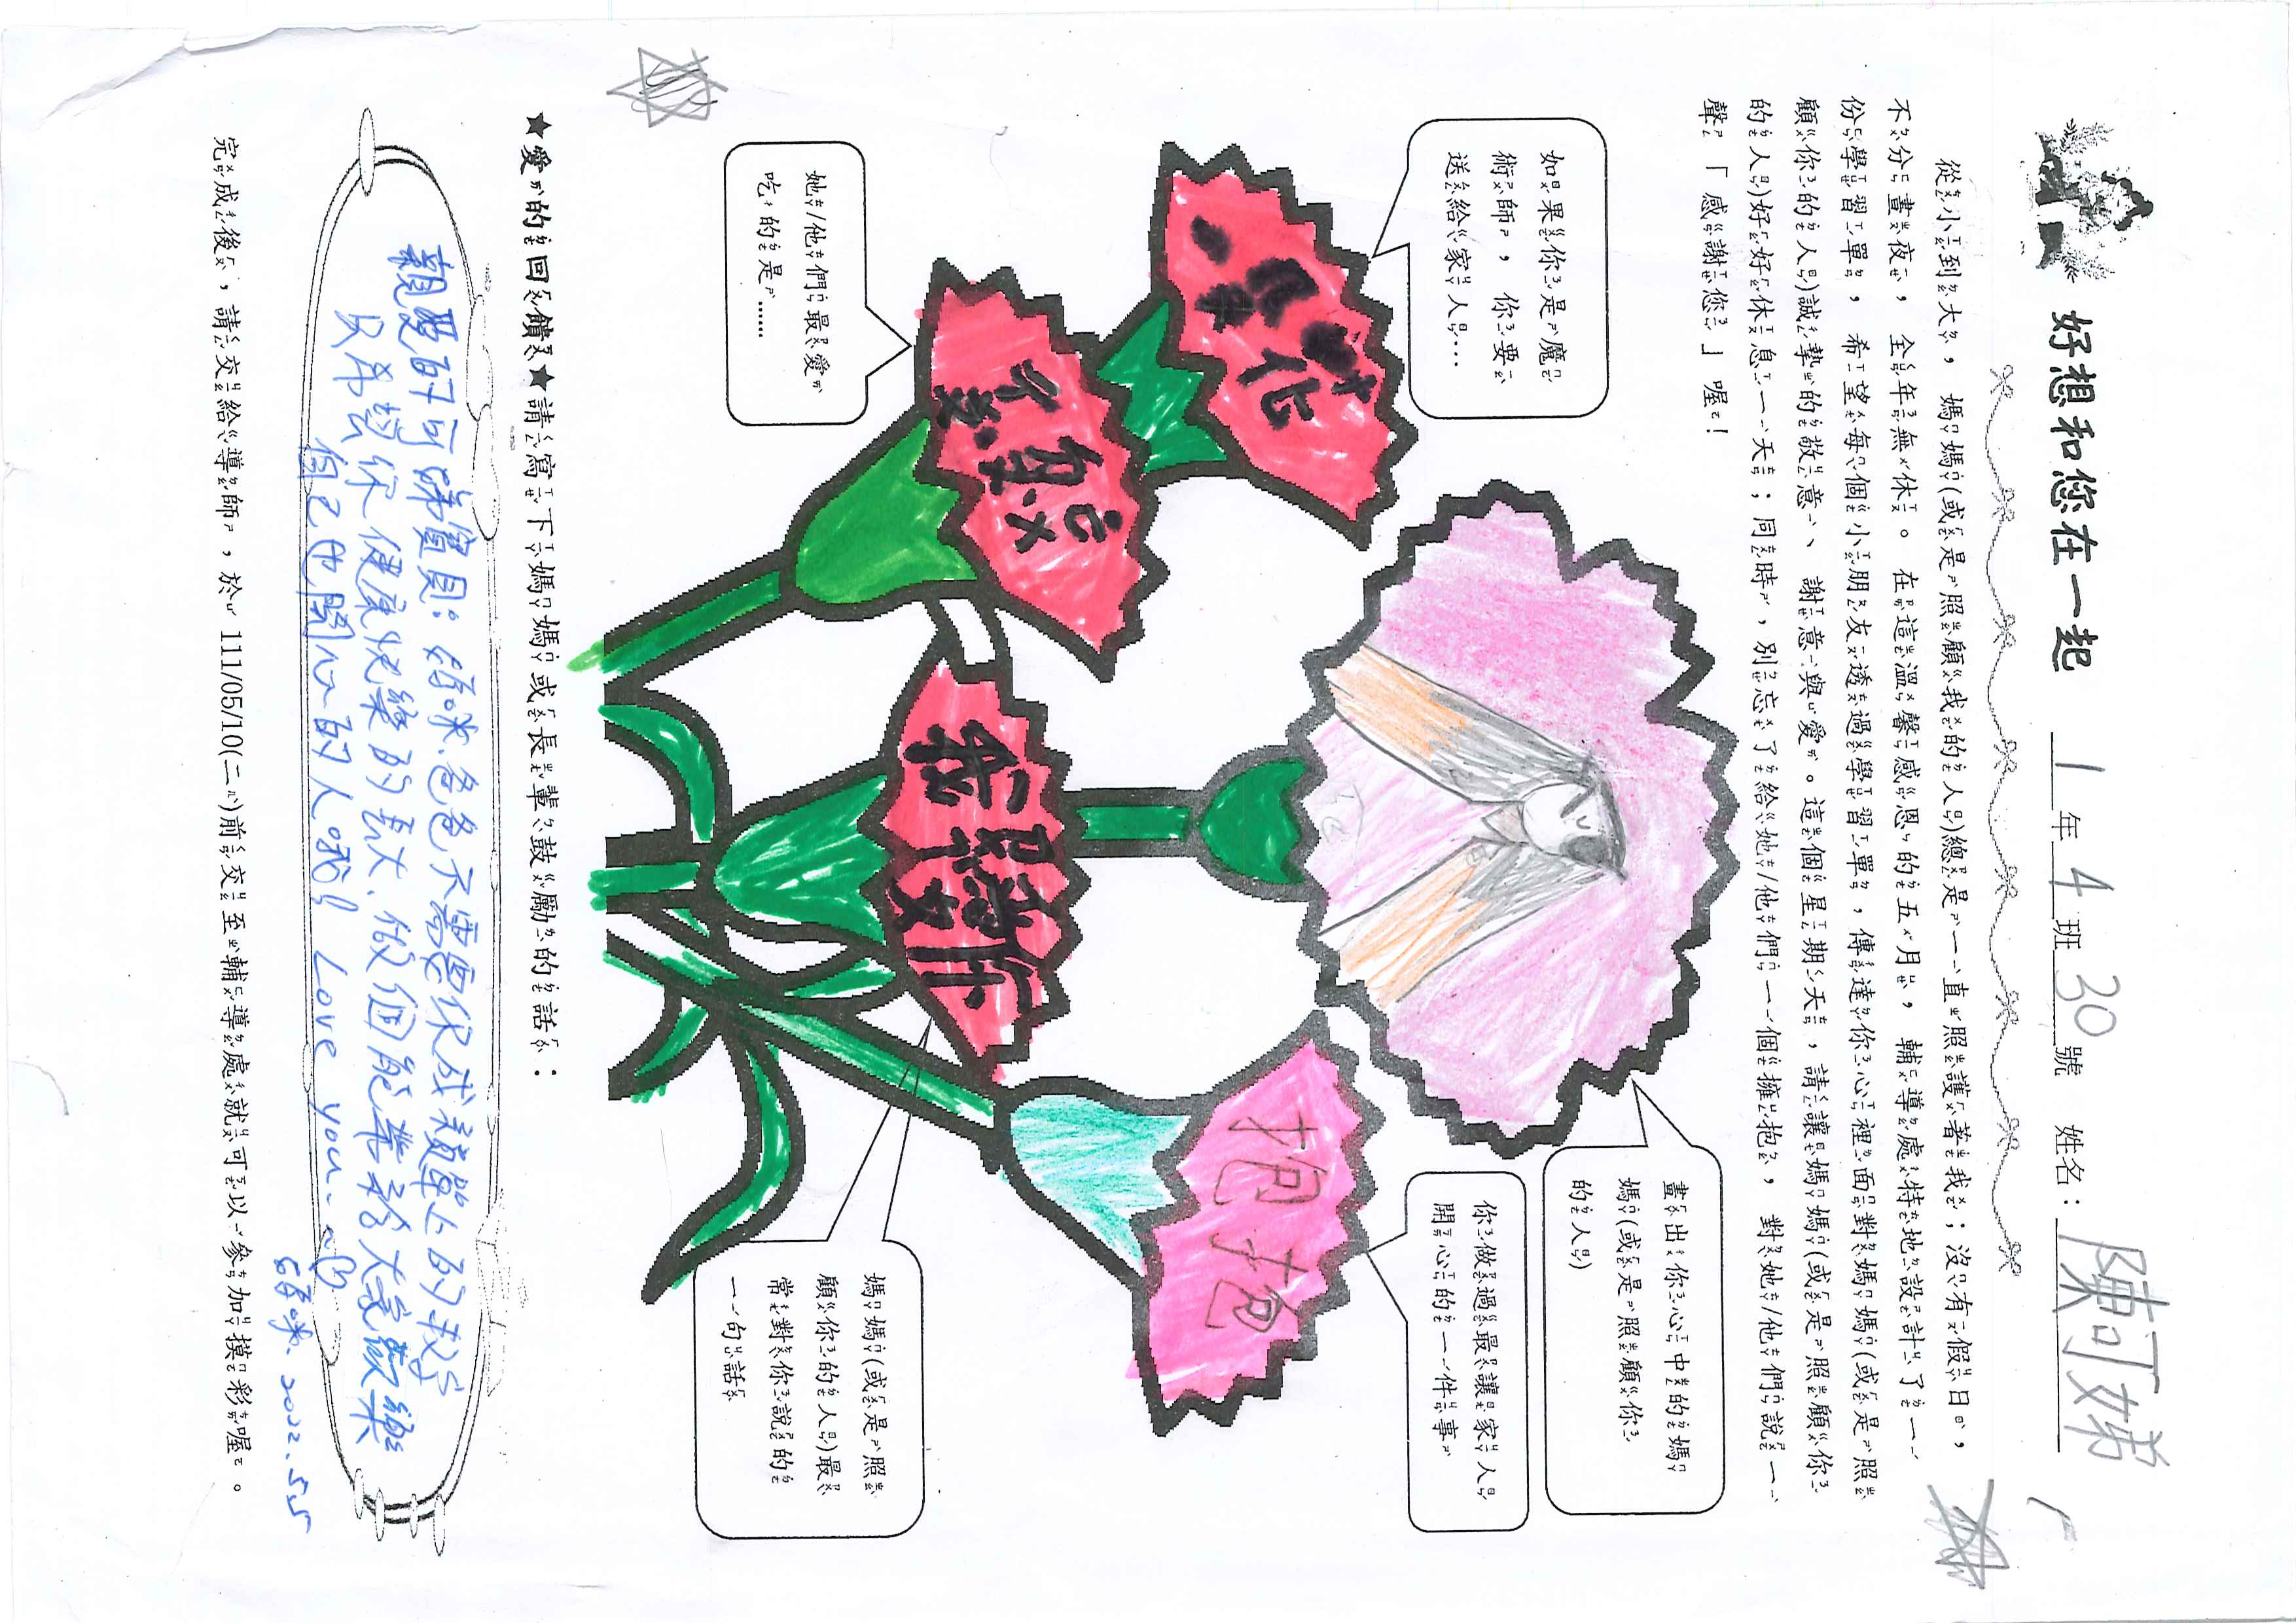 好想和您在一起 1年4班30號 姓名：陳可娣
從小到大，媽媽(或是照顧我的人)總是一直照護著我；沒有假日，
不分晝夜，全年無休。在這溫馨感恩的五月，輔導處特地設計了一
份學習單，希望每個小朋友透過學習單，傳達你心裡面對媽媽(或是照
顧你的人)誠摯的敬意、謝意與愛。這個星期天，請讓媽媽(或是照顧你
的人)好好休息一天；同時，別忘了給她/他們一個擁抱，對她/他們說一
聲「感謝您」喔！
畫出你心中的媽
媽(或是照顧你
的人)
如果你是魔
術師，你要
送給家人…
花
你做過最讓家人
開心的一件事
抱抱
她/他們最愛
吃的是……
媽媽(或是照
顧你的人)最
常對你說的
一句話
我愛你
★愛的回饋★請寫下媽媽或長輩鼓勵的話：
親愛的可娣寶貝：媽咪、爸爸不需要你成績單上的
只希望你健康快樂的長大、做個能帶給大家歡樂
自己也開心的人哦! Love you.
媽咪. 2022.5.5
完成後，請交給導師，於111/05/10(二)前交至輔導處就可以參加摸彩喔。